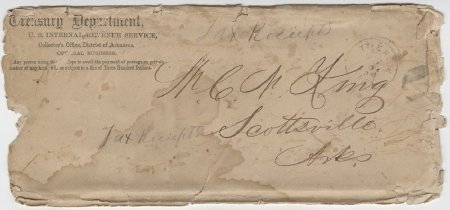 Treasury Department,
U. S. INTERNAL REVENUE SERVICE,
Collector's Office, District of Arkansas.
OFFICIAL BUSINESS.
Any person using this envelope to avoid the payment of postage on private
matter of any kind, will be subject to a fine of Three Hundred Dollars.
Tax Receipts
TTLE
W. C. N. King
Tax Receipts
Scottsville
Arks.